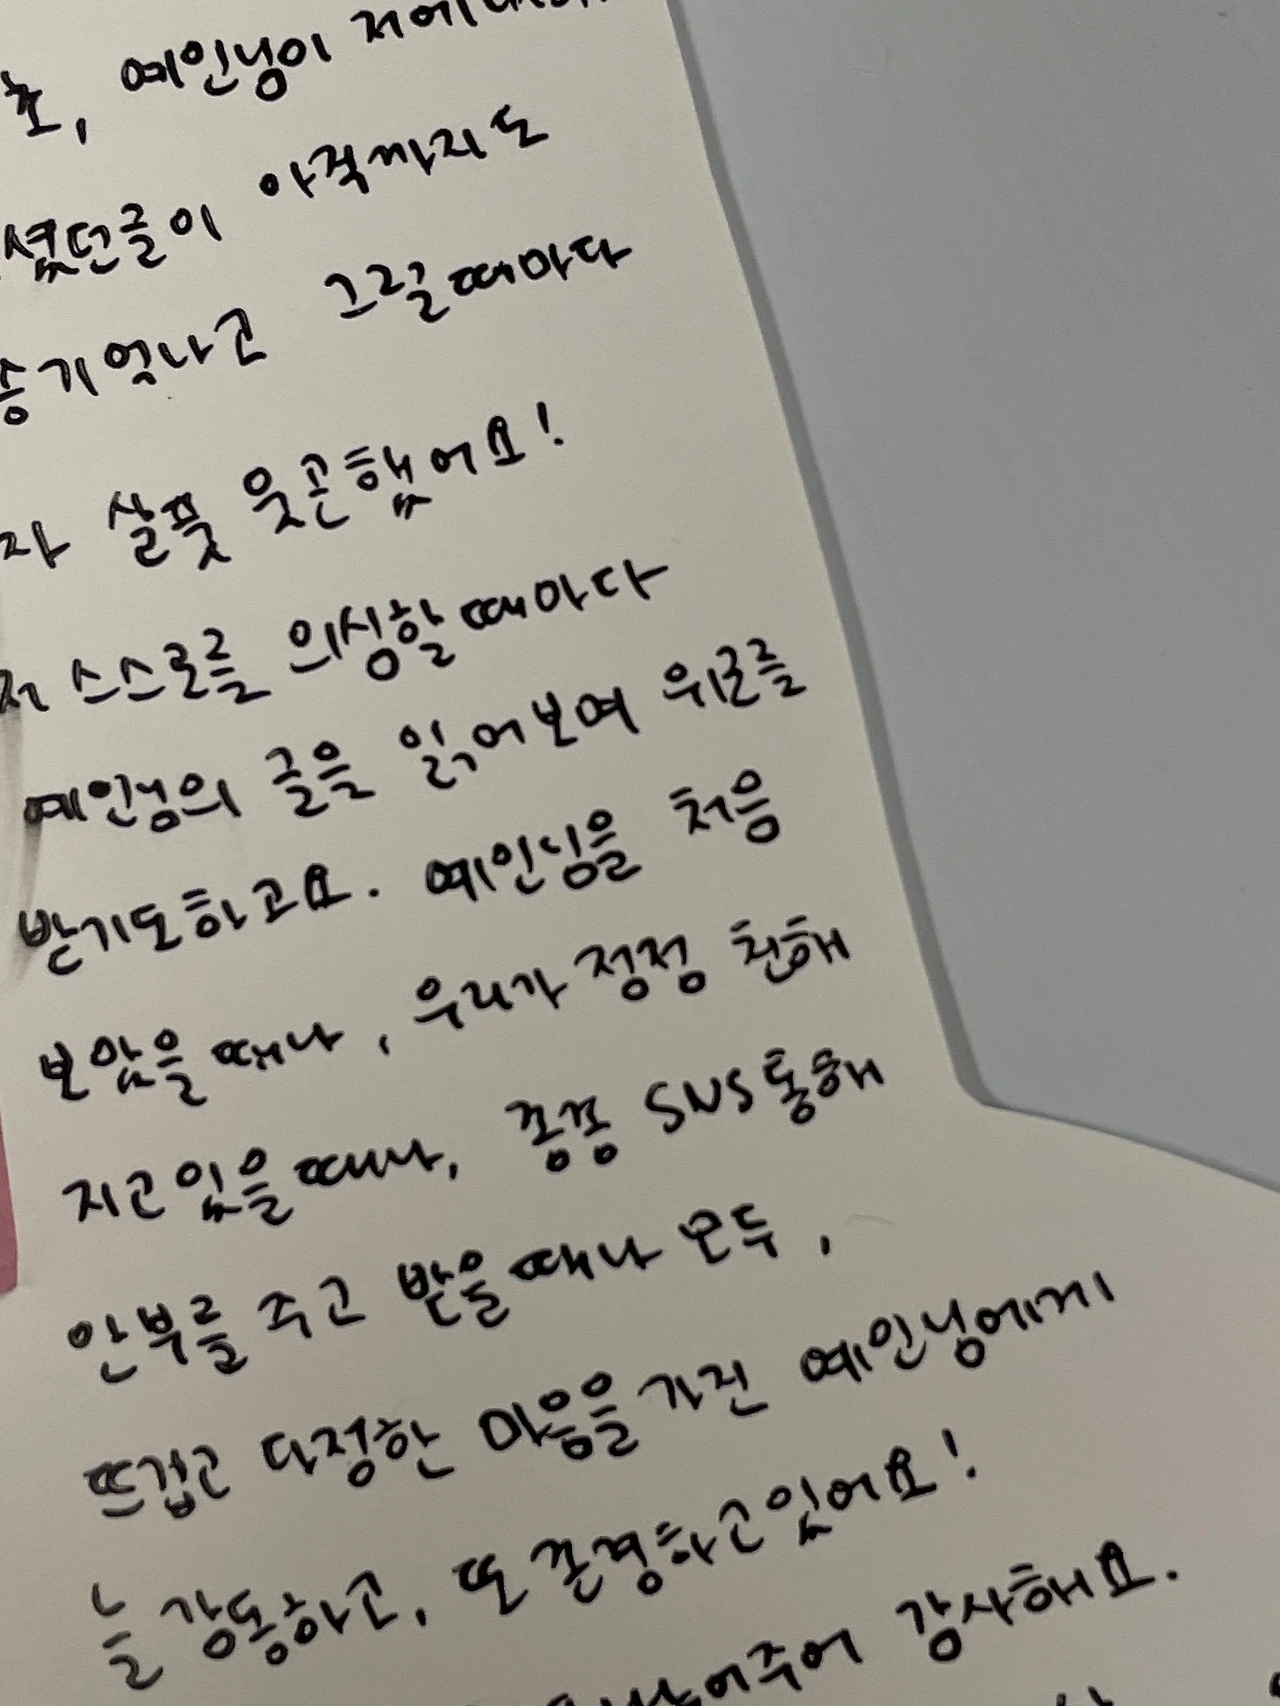 초, 예인님이 저에
셨던글이 아직까지도
기억나고 그럴때마다
자 살풋 웃곤했어요!
저 스스로를 의심할때마다
예인님의 글을 읽어보며 위로를
받기도하고요. 예인님을 처음
보았을때나, 우리가 정정 전해
지고있을때나, 종종 SNS통해
안부를 주고 받을때나 모두,
뜨겁고 다정한 마음을가진 예인님에게
늘 감동하고, 또 존경하고있어요!
주어 감사해요.